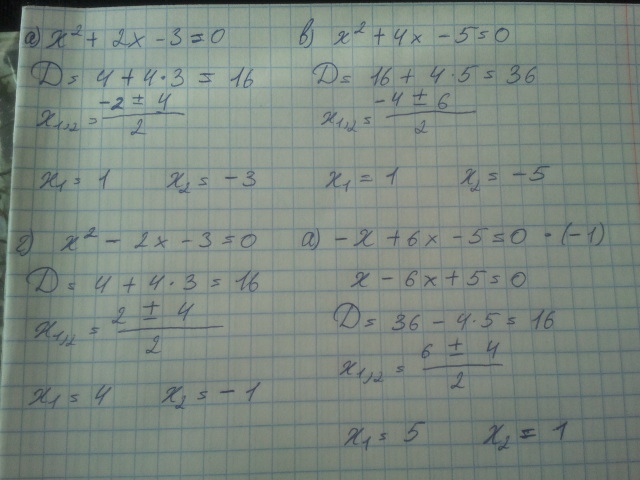 а) x² + 2x - 3 = 0
D = 4 + 4·3 = 16
x₁,₂ = (-2 ± 4)/2
x₁ = 1 x₂ = -3
в) x² + 4x - 5 = 0
D = 16 + 4·5 = 36
x₁,₂ = (-4 ± 6)/2
x₁ = 1 x₂ = -5
г) x² - 2x - 3 = 0
D = 4 + 4·3 = 16
x₁,₂ = (2 ± 4)/2
x₁ = 4 x₂ = -1
а) -x + 6x - 5 = 0 ·(-1)
x - 6x + 5 = 0
D = 36 - 4·5 = 16
x₁,₂ = (6 ± 4)/2
x₁ = 5 x₂ = 1